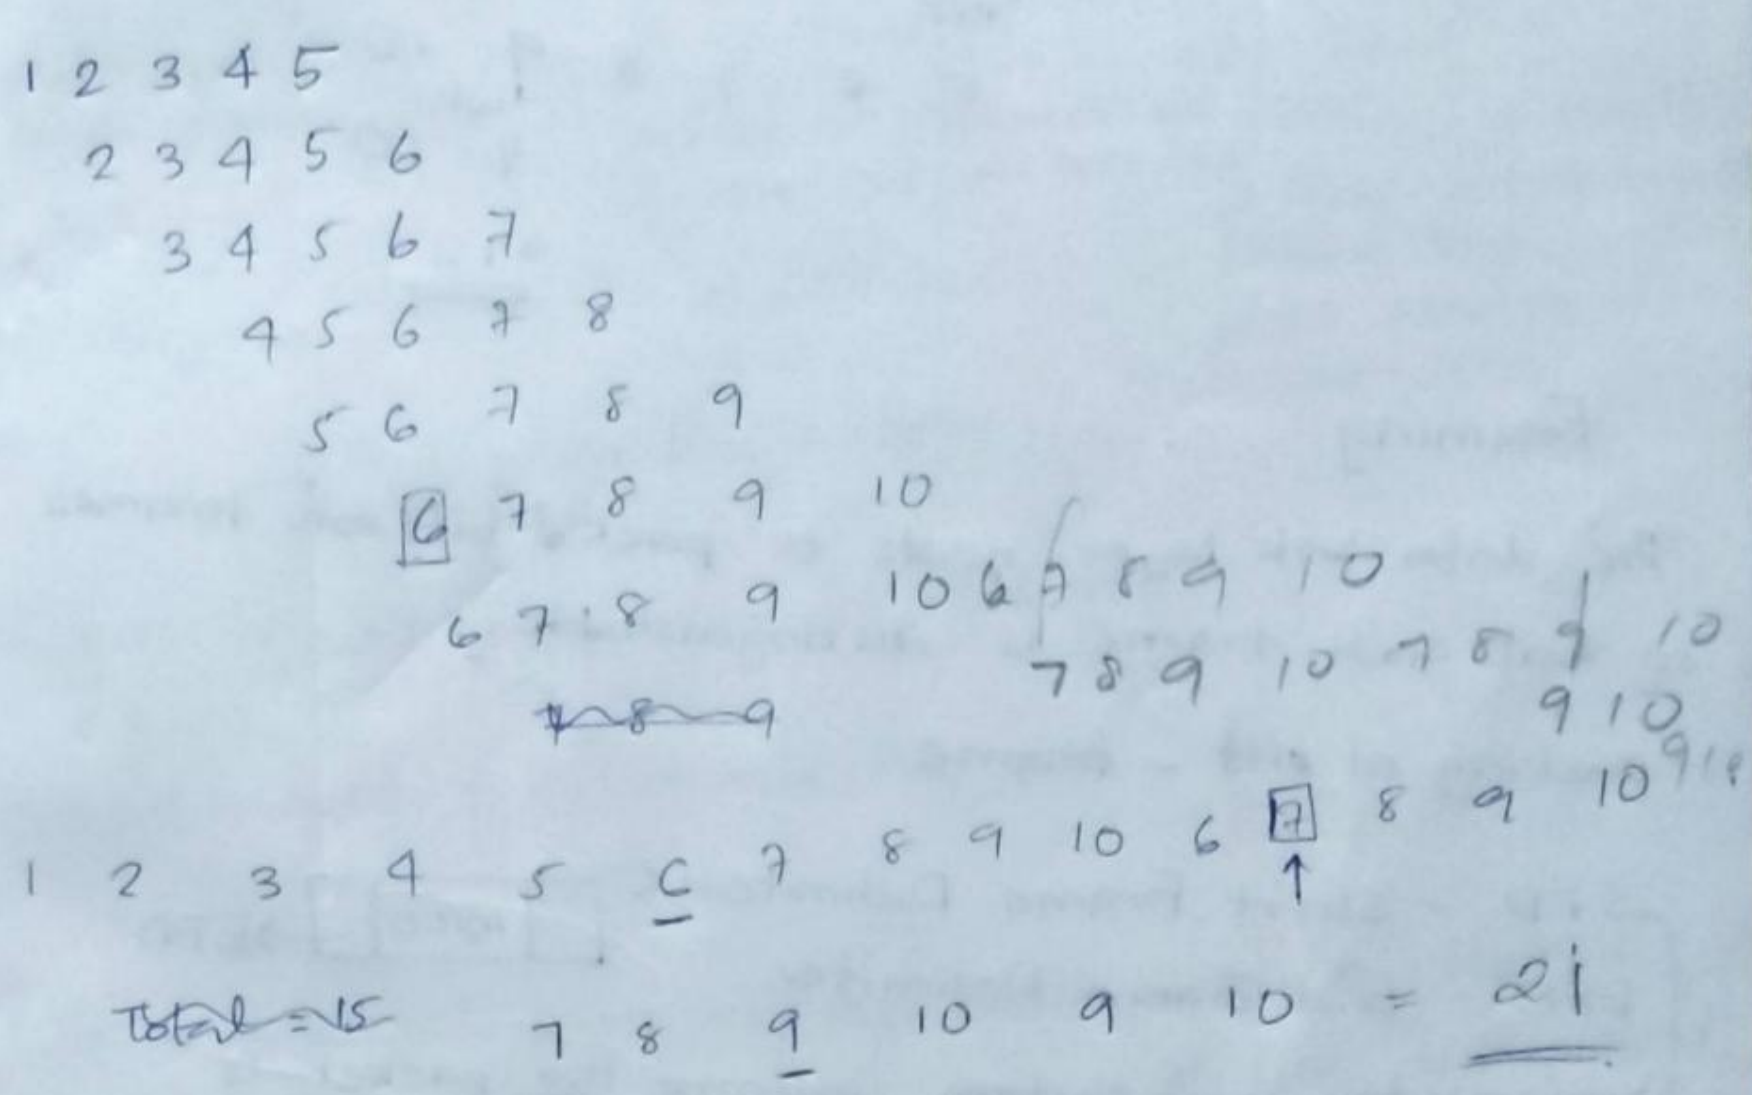 1 2 3 4 5
2 3 4 5 6
3 4 5 6 7
4 5 6 7 8
5 6 7 8 9
6 7 8 9 10
6 7 8 9 10 6 7 8 9 10
7 8 9 10 7 8 9 10
7 8 9
9 10
9 10
1 2 3 4 5 6 7 8 9 10 6 7 8 9 10
Total = 15
7 8 9 10 9 10 = 21